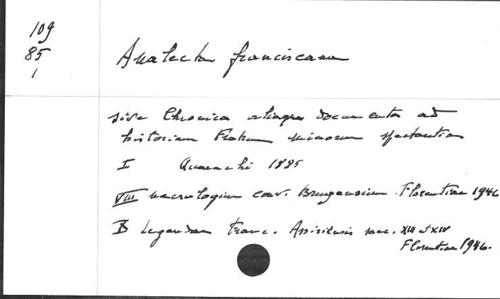 109
85
1
Analecta franciscana
sive Chronica aliaque documenta ad
historiam Fratrum minorum spectantia
I Quaracchi 1885
VIII necrologium conv. Florentiae 1946
Legendae Franc. Assisiensis saec. XIII et XIV
Florentiae 1946.